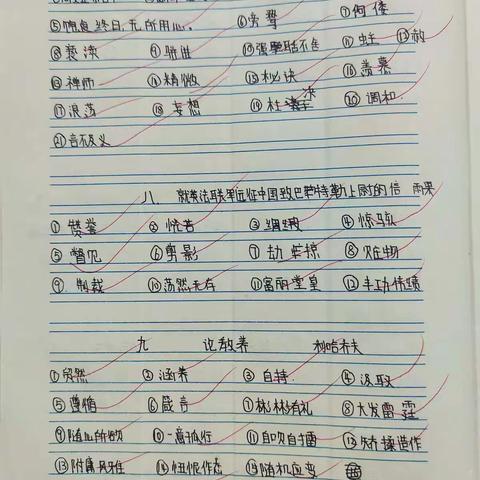 ⑤饱食终日,无所用心。 ⑥旁骛
⑧亵渎 ⑨骈进 ⑩强聒不舍
⑬禅师 ⑭精微 ⑮秘诀 ⑯羡慕
⑰浪荡 ⑱妄想 ⑲杜决 ⑳调和
㉑言不及义
八、就英法联军远征中国致巴特勒上尉的信 雨果
①赞誉 ②恍若 ③绸缎 ④惊骇
⑤瞥见 ⑥剪影 ⑦劫掠 ⑧赃物
⑨制裁 ⑩荡然无存 ⑪富丽堂皇 ⑫丰功伟绩
九 论教养 利哈乔夫
①贸然 ②涵养 ③自持 ④汲取
⑤遵循 ⑥箴言 ⑦彬彬有礼 ⑧大发雷霆
⑨随心所欲 ⑩一意孤行 ⑪自吹自擂 ⑫矫揉造作
⑬附庸风雅 ⑭忸怩作态 ⑮随机应变